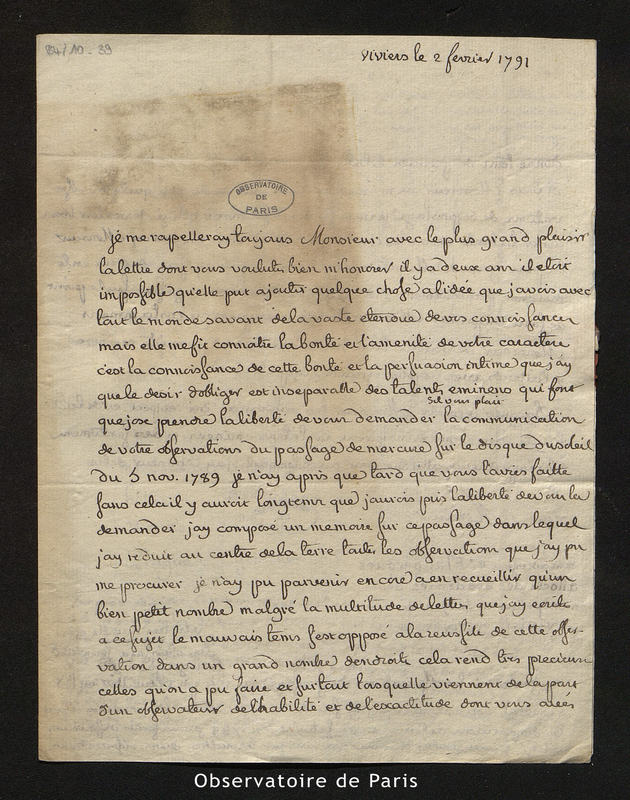 84/10-39
viviers le 2 fevrier 1791
OBSERVATOIRE
DE
PARIS
je me rapelleray toujours Monsieur avec le plus grand plaisir
la lettre dont vous voulutes bien m'honorer il y a deux ans il etoit
impossible qu'elle put ajouter quelque chose a l'idée que j'avois avec
tout le monde savant de la vaste etendue de vos connoissances
mais elle me fit connoitre la bonté et l'amenité de votre caractere
c'est la connoissance de cette bonté et la persuasion intime que j'ay
que le desir d'obliger est inseparable des talents eminens qui font
s'il vous plait
que j'ose prendre la liberté de vous demander la communication
de votre observations du passage de mercure sur le disque du soleil
du 5 nov. 1789 je n'ay apris que tard que vous l'aviés faitte
sans cela il y auroit longtems que j'aurois pris la liberté de vous la
demander j'ay composé un memoire sur ce passage dans lequel
j'ay reduit au centre de la terre toutes les observations que j'ay pu
me procurer je n'ay pu parvenir encore a en recueillir qu'un
bien petit nombre malgré la multitude de lettres que j'ay ecrite
a ce sujet le mauvais tems s'est opposé a la reussite de cette obser-
vation dans un grand nombre d'endroits cela rend tres precieuse
celles qu'on a pu faire et surtout lorsquelle viennent de la part
d'un observateur de l'habilité et de l'exactitude dont vous aves
Observatoire de Paris